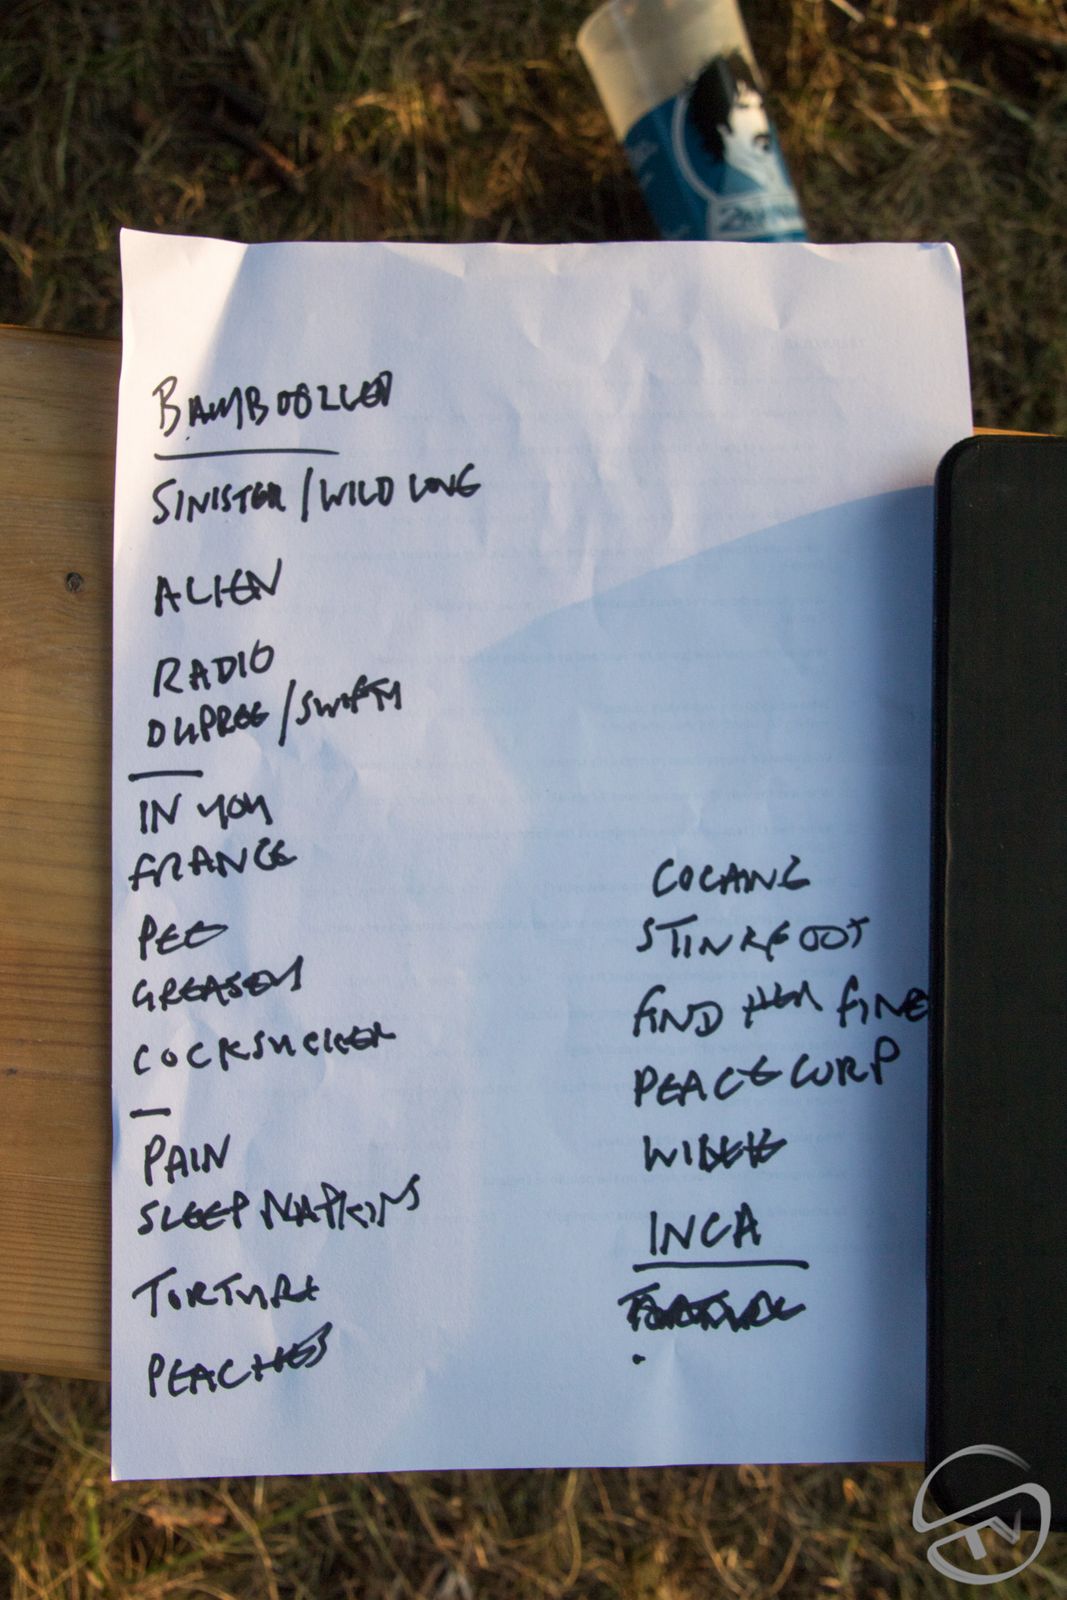 BAMBOOZLED
SINISTER / WILD LOVE
ALIEN
RADIO
DUPREE / SWIFTY
IN YOU
FRANCE
PEE
GREASEY
COCKSUCKER
PAIN
SLEEP NAPKINS
TORTURE
PEACHES
COCAINE
STINKFOOT
FIND HER FINE
PEACE CORP
INCA
TORTURE
TV